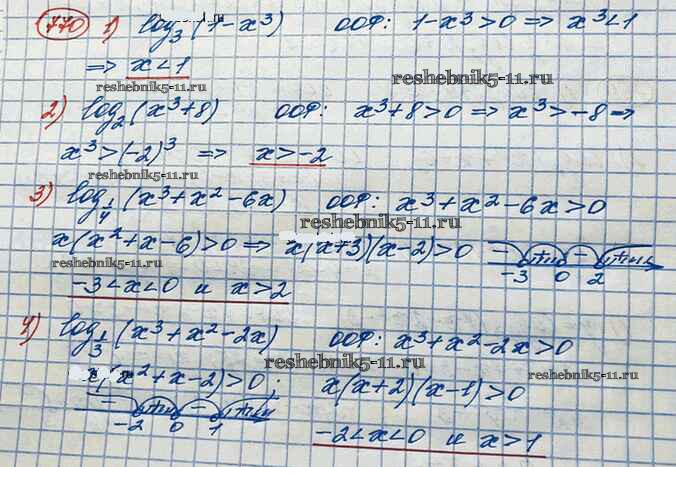 770 1) log₃(1-x³) ООФ: 1-x³>0 => x³<1
=> x<1
reshebnik5-11.ru
reshebnik5-11.ru
2) log₂(x³+8) ООФ: x³+8>0 => x³>-8 =>
x³>(-2)³ => x>-2
reshebnik5-11.ru
3) log_{1/4}(x³+x²-6x) ООФ: x³+x²-6x>0
reshebnik5-11.ru
x(x²+x-6)>0 => x(x+3)(x-2)>0 - + - +
-3 0 2
reshebnik5-11.ru
-3<x<0 и x>2
4) log_{1/3}(x³+x²-2x) ООФ: x³+x²-2x>0
reshebnik5-11.ru
reshebnik5-11.ru
x(x²+x-2)>0; x(x+2)(x-1)>0
- + - +
-2 0 1
-2<x<0 и x>1